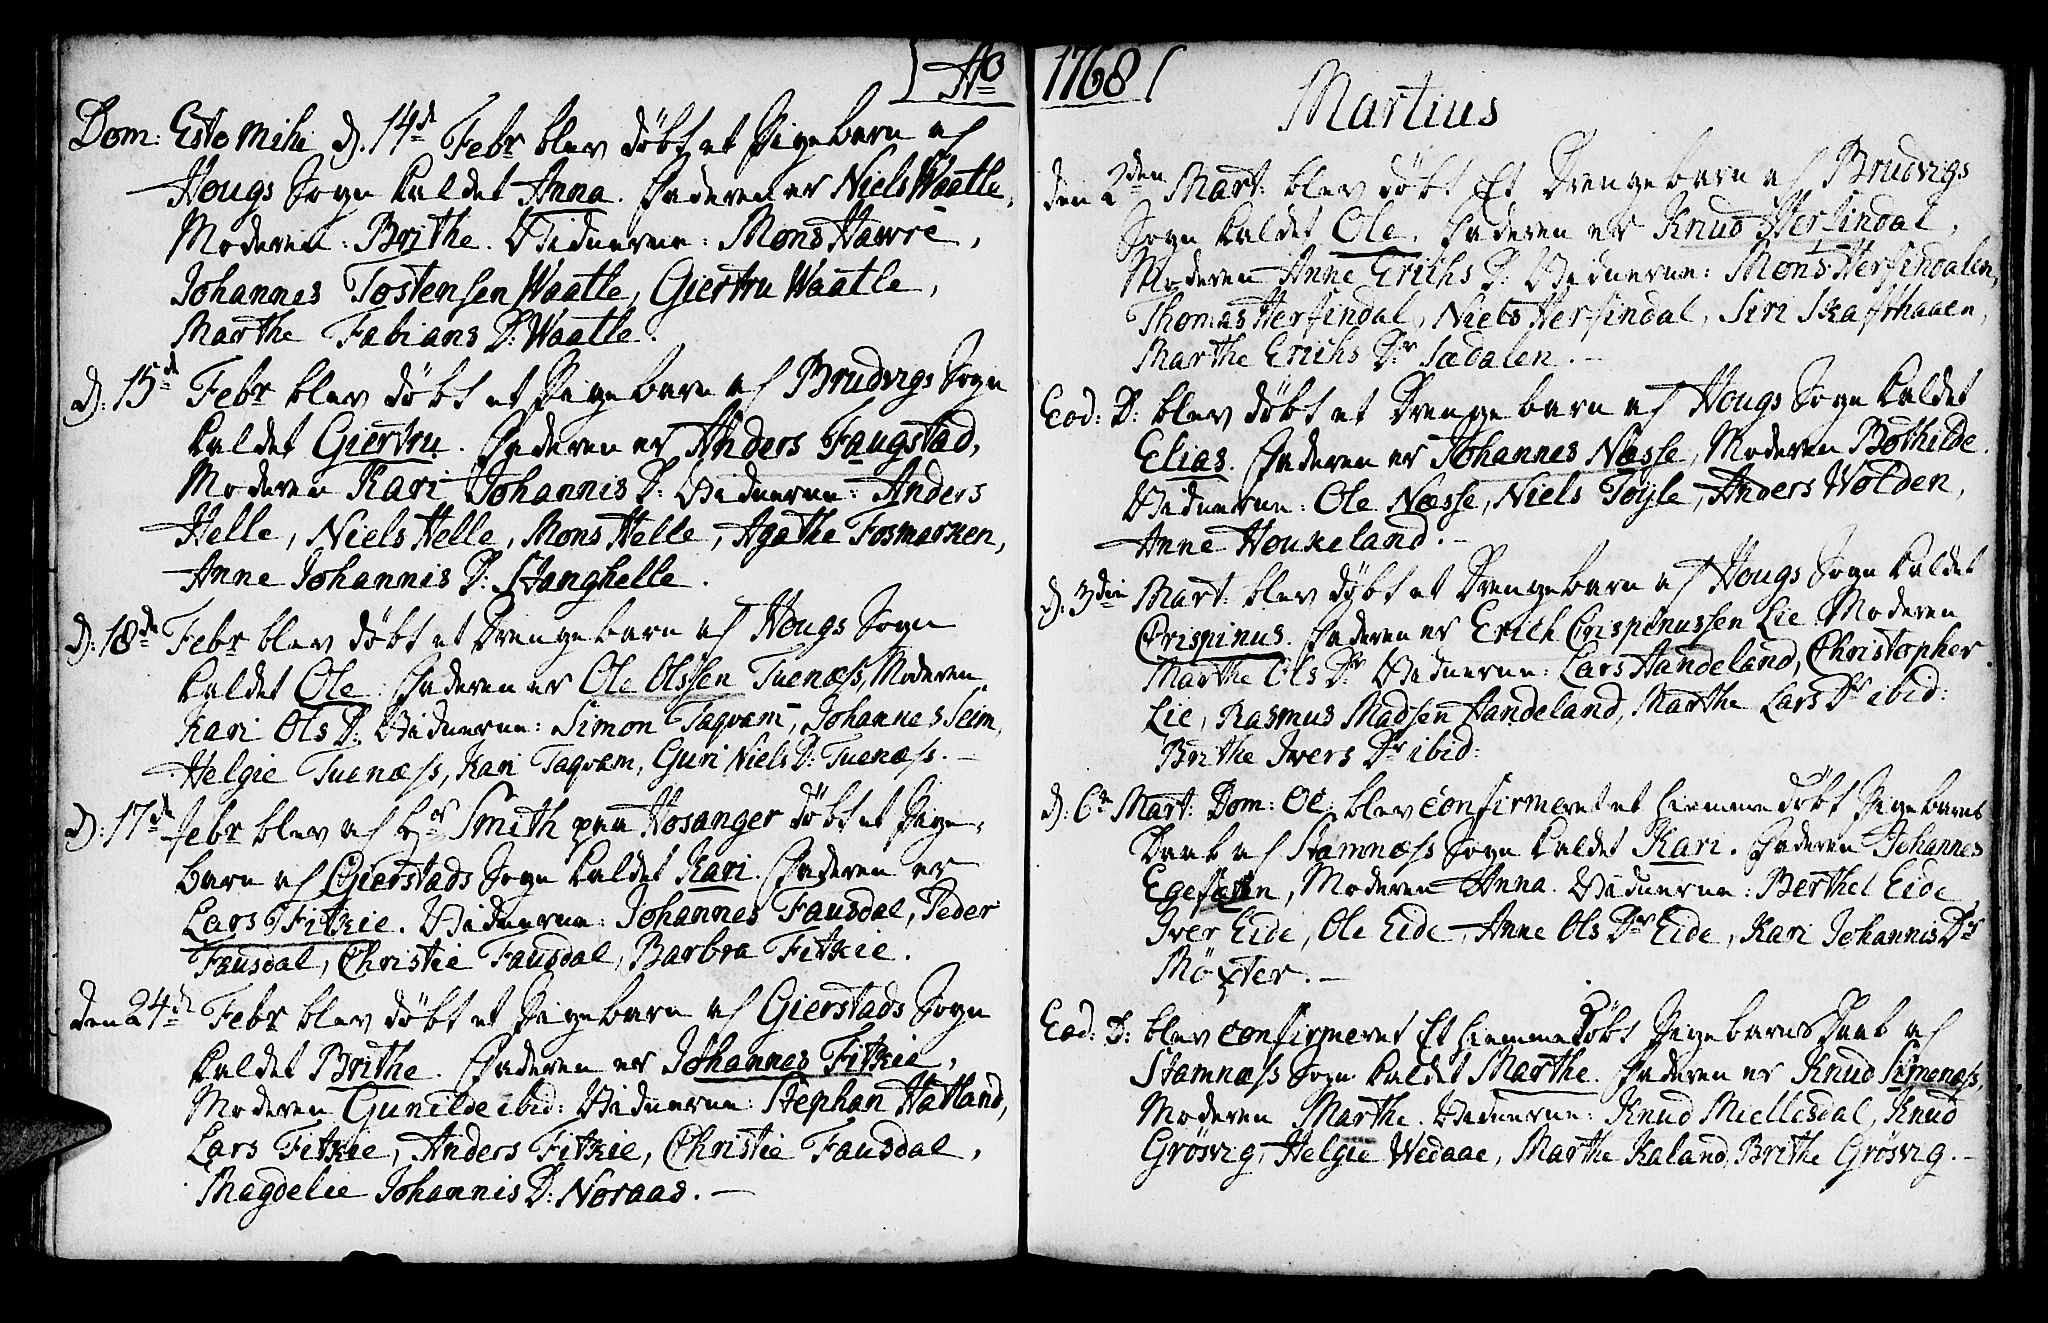 Ao
Dom: Esto Mihi d. 14d Febr blev døbt et Pigebarn af
Hougs Sogn kaldet Anna. Faderen er Niels Waatle,
Moderen: Brithe. Vidnerne: Mons Hawre,
Johannes Tostensen Waatle, Giertru Waatle,
Marthe Fabians D: Waatle.
d: 15d Febr blev døbt et Pigebarn af Brudvigs Sogn
kaldet Giertru. Faderen er Anders Faugstad,
Moderen Kari Johannis D: Vidnerne: Anders
Helle, Niels Helle, Mons Helle, Agathe Fosmarken,
Anne Johannis D: Stanghelle.
d: 18de Febr blev døbt et Drengebarn af Hougs Sogn
kaldet Ole. Faderen er Ole Olssen Tuenæss, Moderen
Kari Ols D: Vidnerne: Simon Taqvam, Johannes Seim,
Helgie Tuenæss, Kari Taqvam, Guri Niels D: Tuenæss.
d: 17de Febr blev af Hr Smith paa Hosanger døbt et Pige-
barn af Gierstads Sogn kaldet Kari. Faderen er
Lars Fitkie. Vidnerne: Johannes Fausdal, Peder
Fausdal, Christie Fausdal, Barbra Fitkie.
den 24d Febr blev døbt et Pigebarn af Gierstads Sogn
kaldet Brithe. Faderen er Johannes Fitkie,
Moderen Gunilde ibid: Vidnerne: Stephan Hatland,
Lars Fitkie, Anders Fitkie, Christie Fausdal,
Magdelie Johannis D: Noraas.
1768
Martius
den 2den Mart: blev døbt Et Drengebarn af Brudvigs
Sogn kaldet Ole. Faderen er Knud Hersindal,
Moderen Anne Erichs D: Vidnerne: Mons Hersindalen,
Thomas Hersindal, Niels Hersindal, Siri Skafthaaen,
Marthe Erichs Dr Sædalen.
Eod: D: blev døbt et Drengebarn af Hougs Sogn kaldet
Elias. Faderen er Johannes Næsse, Moderen Bothilde.
Vidnerne: Ole Næsse, Niels Toyle, Anders Wolden,
Anne Houkeland.
d: 3die Mart: blev døbt et Drengebarn af Hougs Sogn kaldet
Crispinus. Faderen er Erich Crispinussen Lie Moderen
Marthe Ols Dr Vidnerne: Lars Handeland, Christopher
Lie, Rasmus Madsen Handeland, Marthe Lars Dr ibid:
Brithe Ivers Dr ibid:
d: 6d Mart: Dom: Oc: blev confirmeret et hiemmedøbt Pigebarns
Daab af Stamnæss Sogn kaldet Kari. Faderen Johannes
Moderen Anna. Vidnerne: Berthel Eide
Iver Eide, Ole Eide, Anne Ols Dr Eide, Kari Johannis Dr
Møxter.
Eod: D: blev confirmeret Et hiemmedøbt Pigebarns Daab af
Stamnæss Sogn kaldet Marthe. Faderen er Knud Simenæss,
Moderen Marthe. Vidnerne: Knud Miellesdal, Knud
Grøsvig, Helgie Wedaae, Marthe Kaland, Brithe Grøsvig.